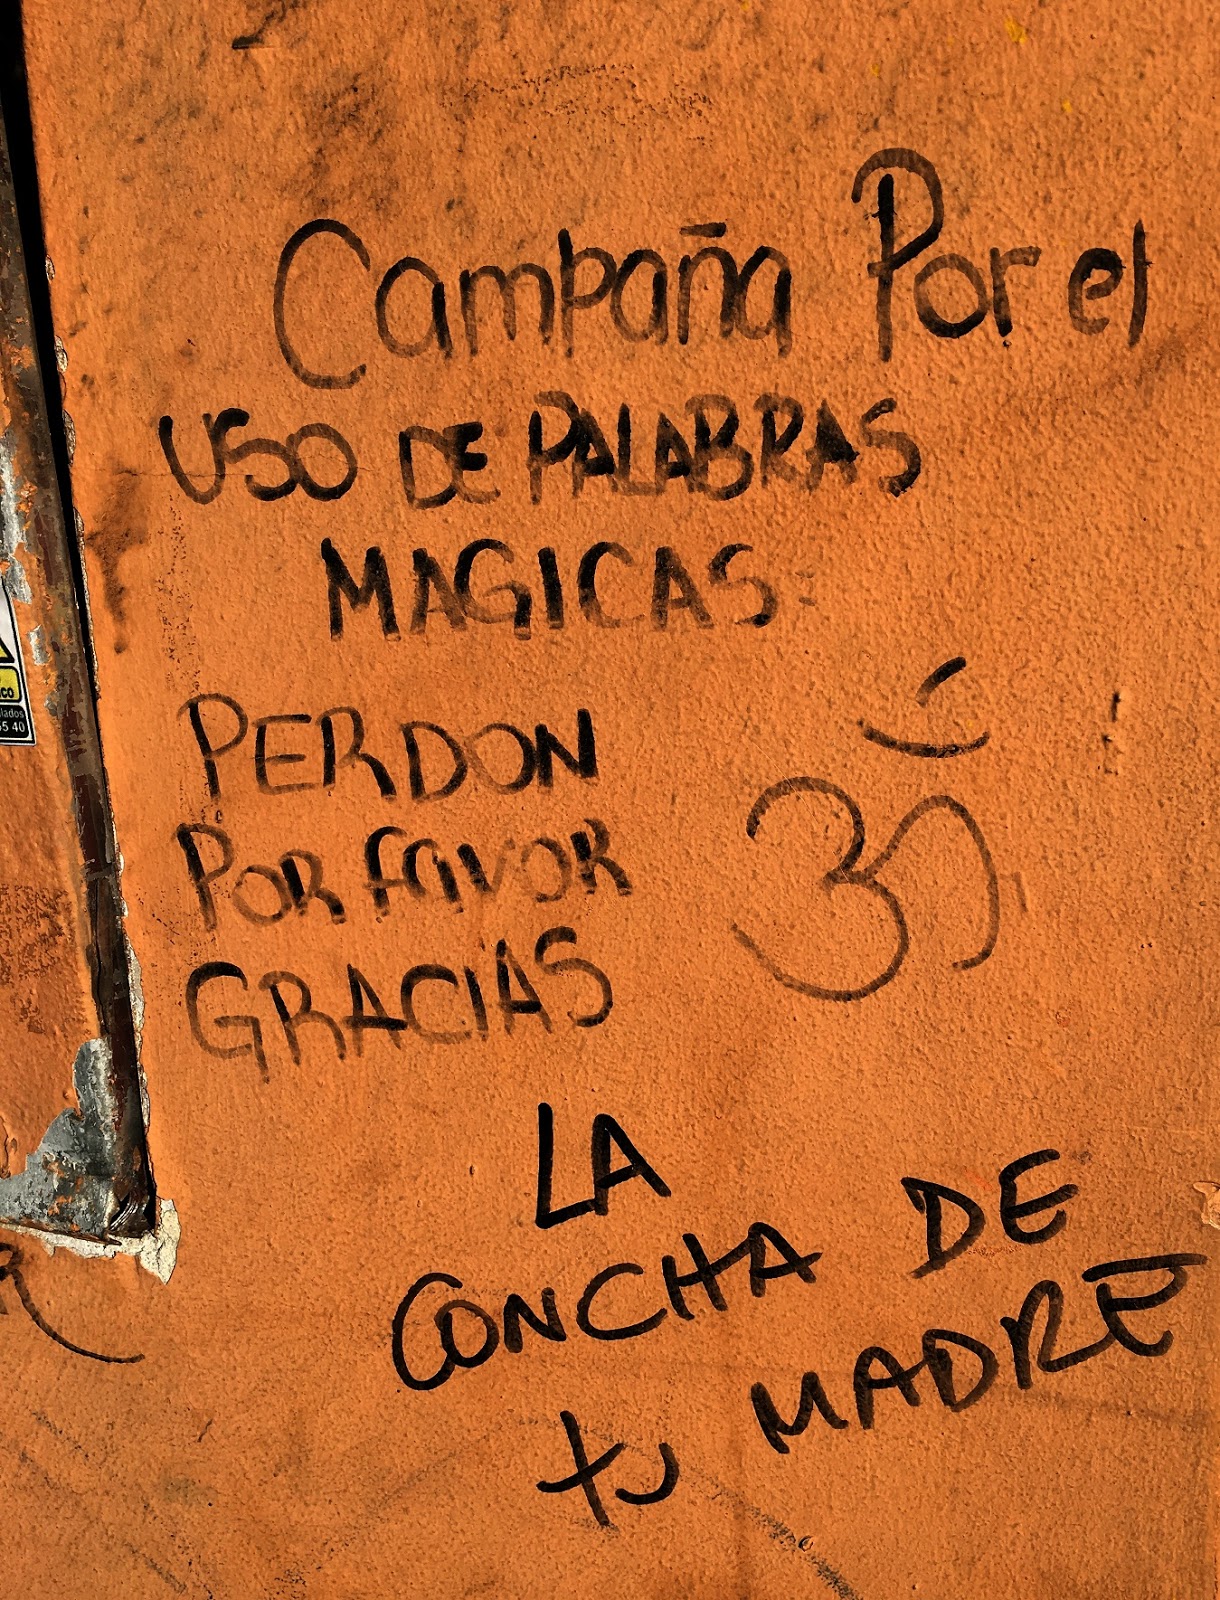 Campaña Por el
USO DE PALABRAS
MAGICAS
PERDON
POR FAVOR
GRACIAS
LA
CONCHA DE
tu MADRE
co
lados
55 40